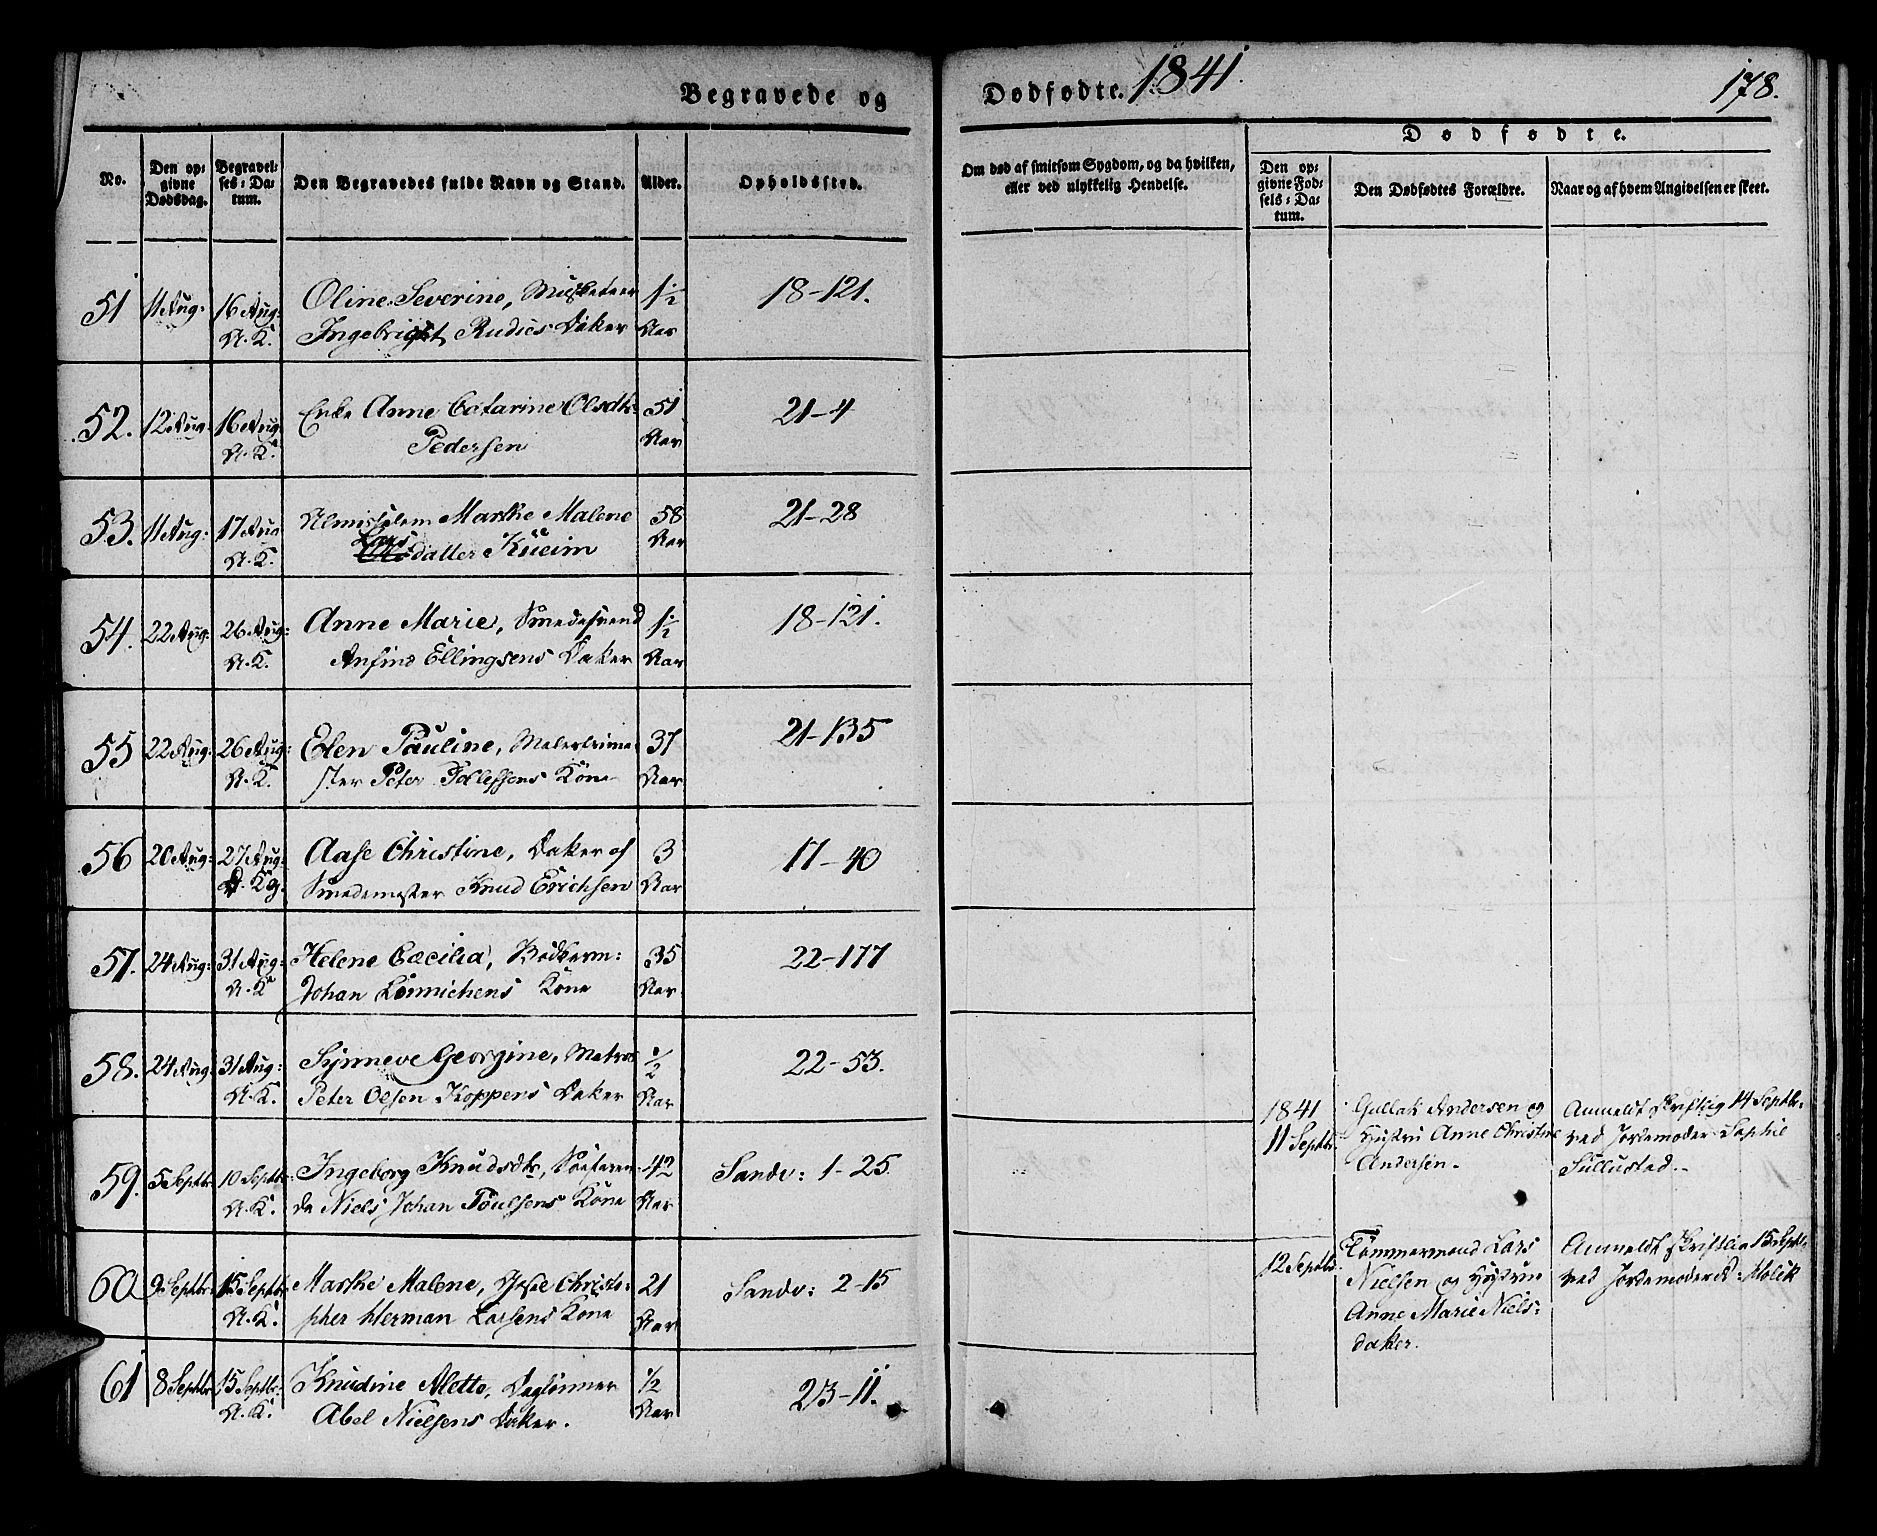 Begravede og
No.
Den op-
givne
Dødsdag.
Begravel-
ses-Da-
tum.
Den Begravedes fulde Navn og Stand.
Alder.
Opholdssted.
51 11 Aug: 16 Aug: Oline Severine, 1½ 18-121.
N. K. Ingebrigt Rudies Datter Aar
52. 12 Aug: 16 Aug Enke Anne Catarine Olsdtr: 51 21-4
N. K. Pedersen Aar
53. 11 Aug: 17 Aug Almisselem Marthe Malene 58 21-28
N. K. Lars datter Aar
54. 22 Aug: 26 Aug: Anne Marie, Smedesvend 1½ 18-121.
N. K. Anfind Ellingsens Datter Aar
55 22 Aug: 26 Aug: Elen Pauline, 37 21-135
N. K. ster Peter Kone Aar
56 20 Aug: 27 Aug: Aase Christine, Datter af 3 17-40
Smedemester Knud Erichsen Aar
57. 24 Aug: 31 Aug: Helene Cæcilia, Bødkerm: 35 22-177
N. K. Johan Lønnichens Kone Aar
58. 24 Aug: 31 Aug: Synneve Georgine, Matros ½ 22-53.
N. K. Peter Olsen Koppens Datter Aar
59. 5 Septbr: 10 Septbr: Ingeborg Knudsdtr, Søefaren- 42 Sandv: 1-25.
N. K. de Niels Johan Poulsens Kone Aar
60 9 Septbr: 15 Septbr: Marthe Malene, Christo- 21 Sandv: 2-15
N. K. pher Herman Larsens Kone Aar
61 8 Septbr: 15 Septbr: Knudine Alette, Daglønner ½ 23-11.
N. K. Abel Nielsens Datter. Aar
Dødfødte. 1841.
178.
Dødfødte.
Om død af smitsom Sygdom, og da hvilken,
eller ved ulykkelig Hendelse.
Den op-
givne Fød-
sels-Da-
tum.
Den Dødfødtes Forældre.
Naar og af hvem Angivelsen er skeet.
1841 Gullak Andersen og Anmeldt skriftlig 14 Septbr:
11 Septbr: Hustru Anne Christine ved Jordemoder Sophie
Andersen. Sullustad.
Tømmermand Lars Anmeldt skriftlig 15 Septbr:
12 Septbr: Nielsen og Hustrue ved Jordemoder
Anne Marie Niels-
datter.